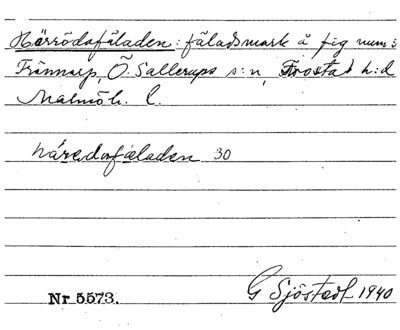 Hörrödafäladen: fäladsmark å fig num 5
Frännarp, Ö. Sallerups s:n, Frostad h:d
Malmöh. l.
håredasfæladen 30
Nr 5573.
G Sjöstedt 1940